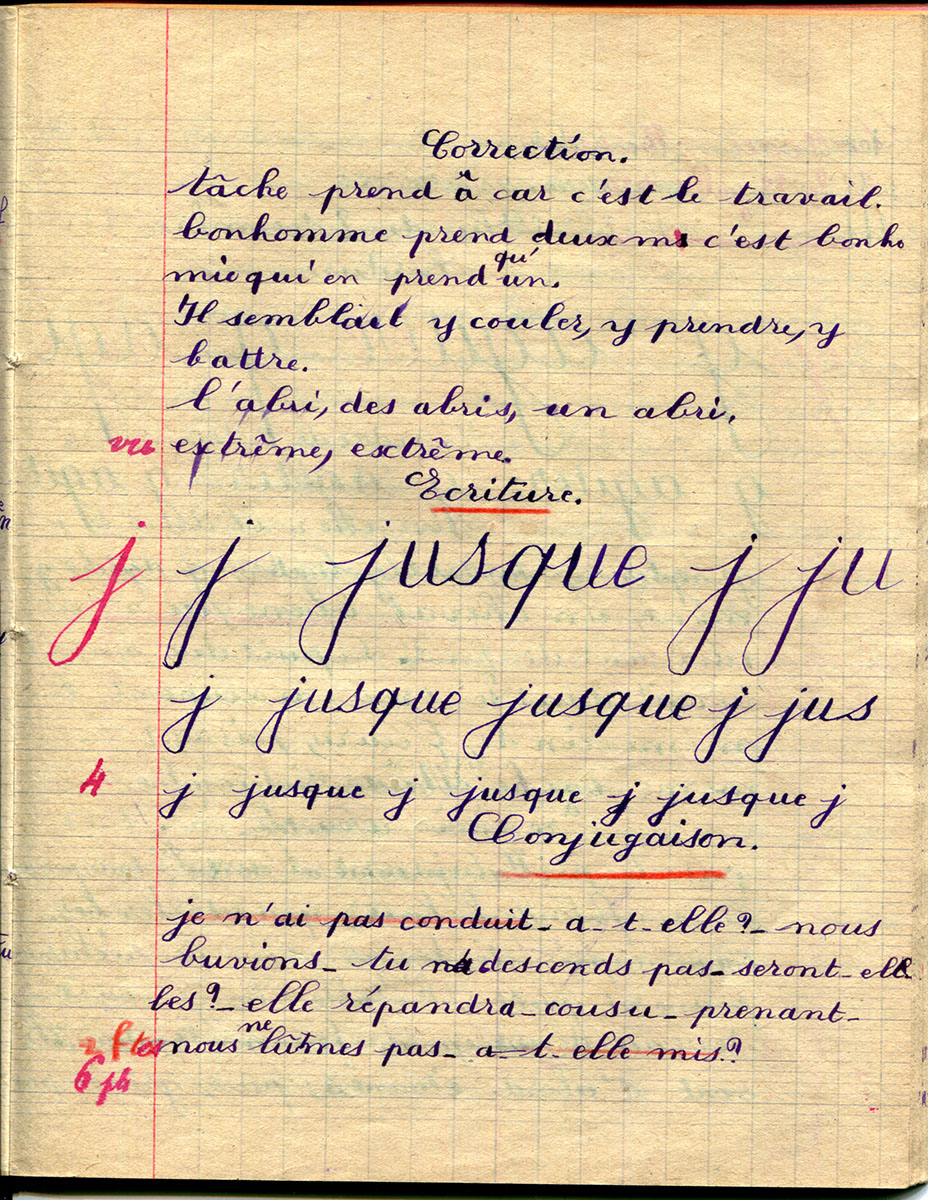 Correction.
tâche prend â car c'est le travail.
bonhomme prend deux m c'est bonho
mie qui en prend qu'un.
Il semblait y couler, y prendre, y
battre.
l'abri, des abris, un abri.
vu extrême, extrême.
Ecriture.
j j jusque j ju
j jusque jusque j jus
4 j jusque j jusque j jusque j
Conjugaison.
je n'ai pas conduit - a - t - elle? - nous
buvions - tu ne descends pas - seront - ell
les? - elle répandra - cousu - prenant -
2 ftes nous ne lûmes pas - a - t - elle mis?
6 ph